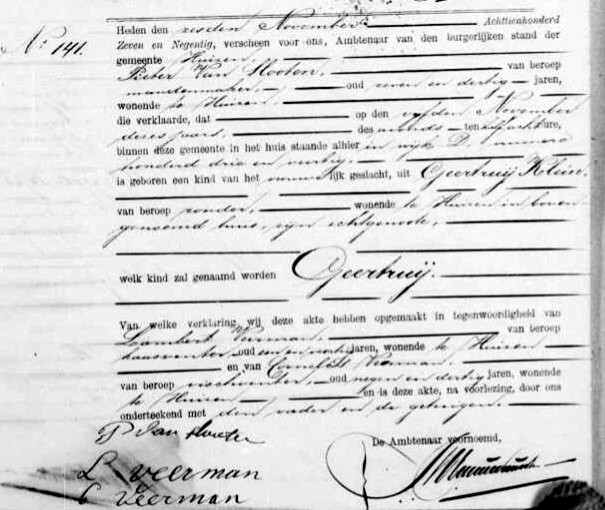 No. 141.
Heden den zesden November Achttienhonderd
Zeven en Negentig, verscheen voor ons, Ambtenaar van den burgerlijken stand der
gemeente Huizen,
Pieter Van Hooten, van beroep
mandenmaker, oud zeven en dertig jaren,
wonende te Huizen
die verklaarde, dat op den vijfden November
dezes jaars, des avonds ten half acht ure,
binnen deze gemeente in het huis staande alhier in wijk D. numero
honderd drie en veertig,
is geboren een kind van het vrouwelijk geslacht, uit Geertruij Klein,
van beroep zonder, wonende te Huizen in boven-
genoemd huis, zijn echtgenoote,
welk kind zal genaamd worden Geertruij.
Van welke verklaring wij deze akte hebben opgemaakt in tegenwoordigheid van
Lambert Veerman, van beroep
kaasventer, oud een en jaren, wonende te Huizen
en van Cornelis Veerman,
van beroep vischventer, oud negen en dertig jaren, wonende
te Huizen en is deze akte, na voorlezing, door ons
onderteekend met den vader en de getuigen.
P van Hooten
De Ambtenaar voornoemd,
L. Veerman
C Veerman